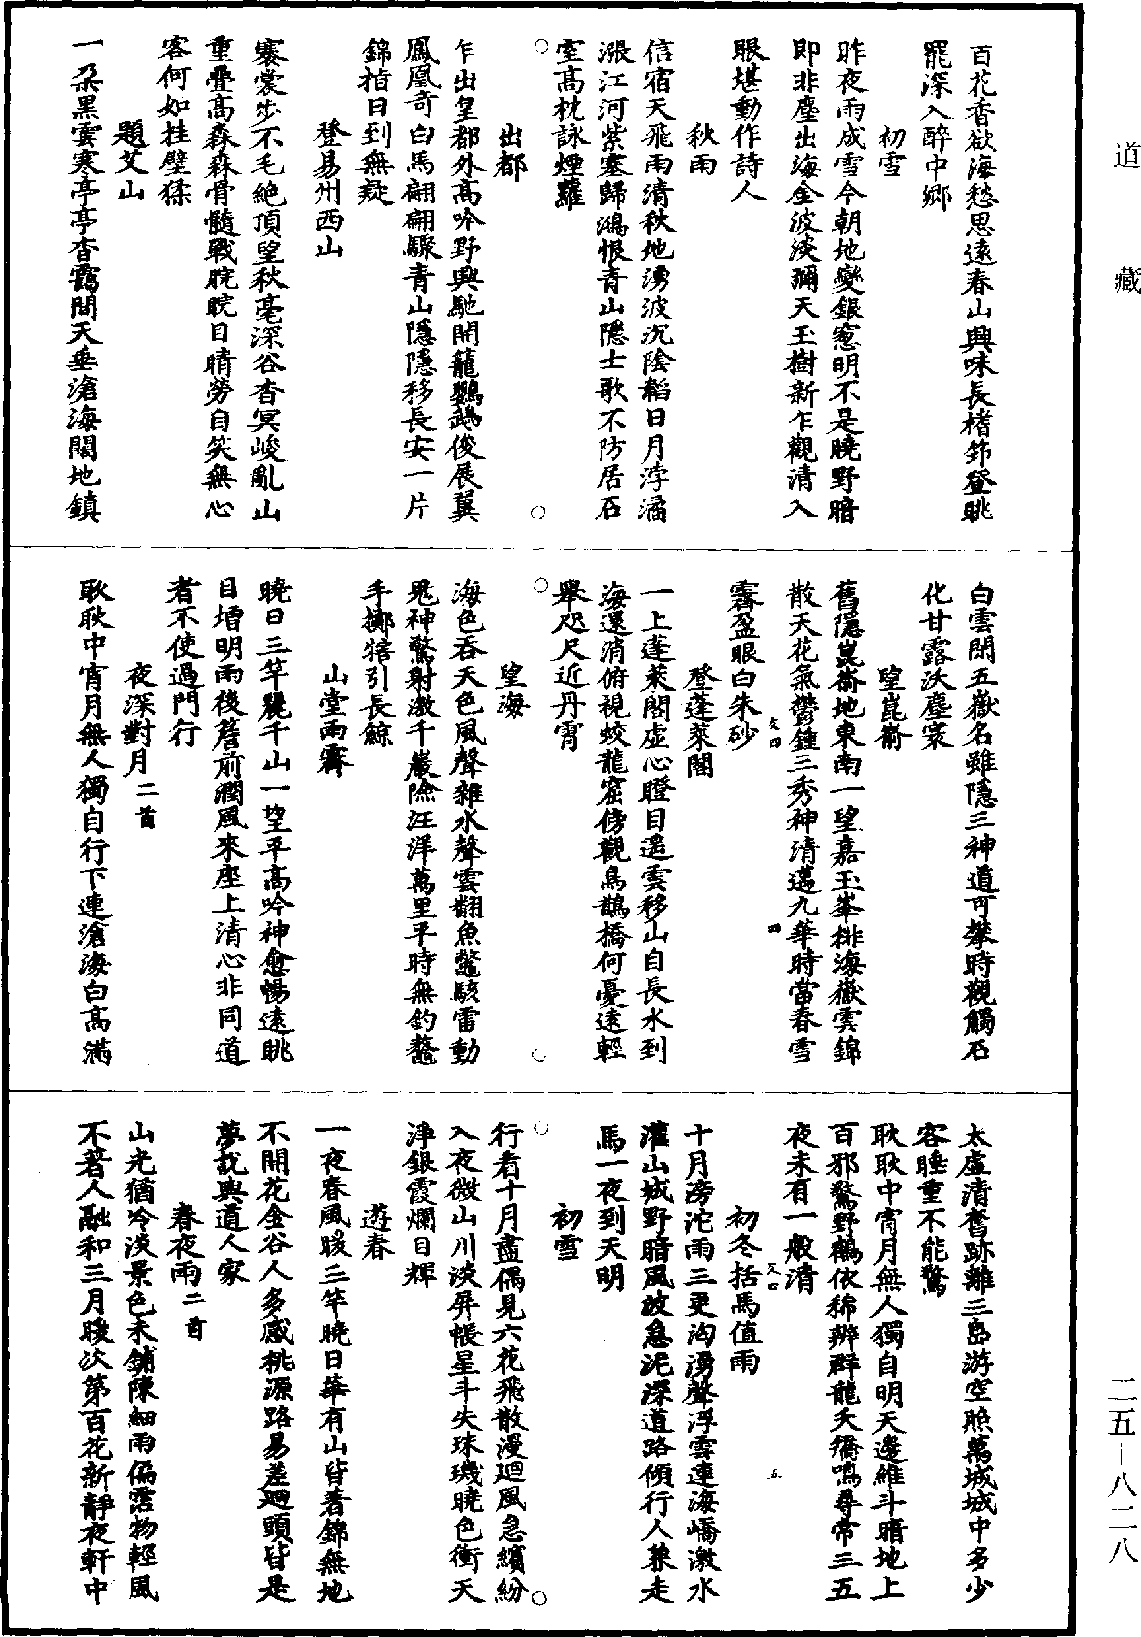 道藏
百花香欲海愁思遠春山興味長楮笻登眺
罷深入醉中鄉
初雪
昨夜雨成雪今朝地變銀窻明不是曉野暗
即非塵出海金波淡彌天玉樹新乍觀清入
眼堪動作詩人
秋雨
信宿天飛雨清秋地湧波沉陰韜日月浡潏
漲江河紫塞歸鴻恨青山隱士歌不防居石
室高枕詠煙蘿
出都
乍出皇都外高吟野興馳開籠鸚鵡俊展翼
鳳凰奇白馬翩翩驟青山隱隱移長安一片
錦指日到無疑
登易州西山
褰裳步不毛絶頂望秋毫深谷杳冥峻亂山
重疊高森森骨髓戰睆睆目睛勞自笑無心
客何如挂壁猱
題艾山
一朶黑雲寒亭亭杳靄間天垂滄海闊地鎮
白雲閑五嶽名雖隱三神道可攀時觀觸石
化甘露沃塵寰
望崑嵛
舊隱崑嵛地東南一望嘉玉峯排海嶽雲錦
散天花氣鬱鍾三秀神清邁九華時當春雪
霽盈眼白朱砂
登蓬萊閣
一上蓬萊閣虛心瞪目遥雲移山自長水到
海還消俯視蛟龍窟傍觀烏鵲橋何憂遠輕
舉咫尺近丹霄
望海
海色吞天色風聲雜水聲雲翻魚鼈駭雷動
鬼神驚射激千巖險汪洋萬里平時無釣鼇
手擲犗引長鯨
山堂雨霽
曉日三竿麗千山一望平高吟神愈暢遠眺
目增明雨後簷前潤風來座上清心非同道
者不使過門行
夜深對月二首
耿耿中宵月無人獨自行下連滄海白高滿
太虛清舊跡離三島游空照萬城城中多少
客睡重不能驚
耿耿中宵月無人獨自明天邊維斗暗地上
百邪驚野鶴依稀辨群龍夭矯鳴尋常三五
夜未有一般清
初冬括馬值雨
十月滂沱雨三更洶湧聲浮雲連海嶠激水
灌山城野暗風波急泥深道路傾行人兼走
馬一夜到天明
初雪
行看十月盡偶見六花飛散漫廻風急繽紛
入夜微山川淡屏帳星斗失珠璣曉色衝天
淨銀霞爛日輝
遊春
一夜春風暖三竿曉日華有山皆著錦無地
不開花金谷人多感桃源路易差廻頭皆是
夢說與道人家
春夜雨二首
山光猶冷淡景色未鋪陳細雨偏霑物輕風
不著人融和三月暖次第百花新靜夜軒中
二五—八二八